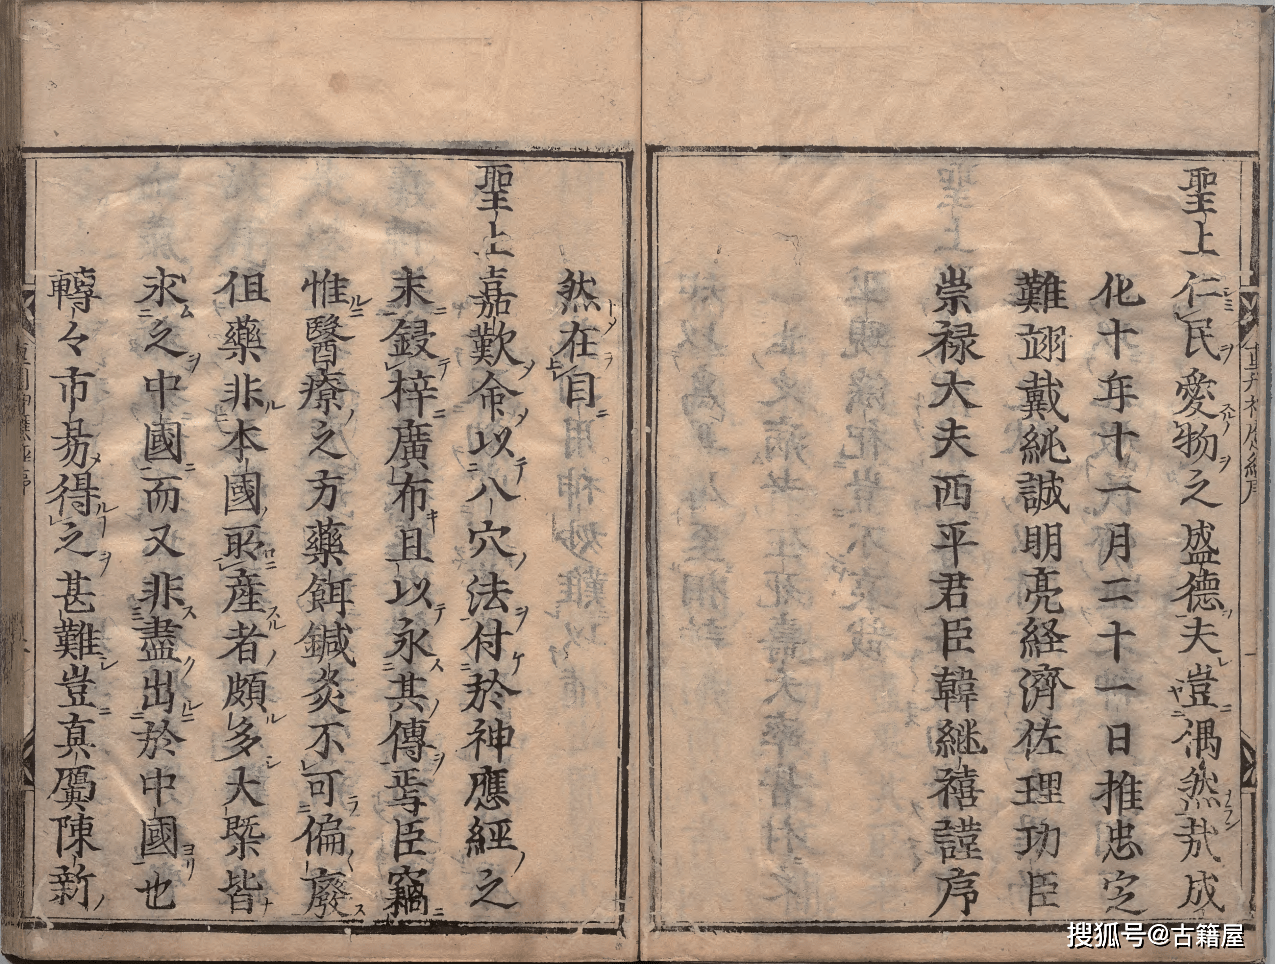 聖上仁民愛物之盛德夫豈偶然哉成
化十年十一月二十一日推忠定
難翊戴純誠明亮経濟佐理功臣
崇禄大夫西平君臣韓継禧謹序
然在目
聖上嘉歎命以八穴法付於神應經之
末鋟梓廣布且以永其傳焉臣竊
惟醫療之方藥餌鍼灸不可偏廢
但藥非本國所産者頗多大槩皆
求之中國而又非盡出於中國也
轉々市易得之甚難豈真贋陳新
搜狐号@古籍屋